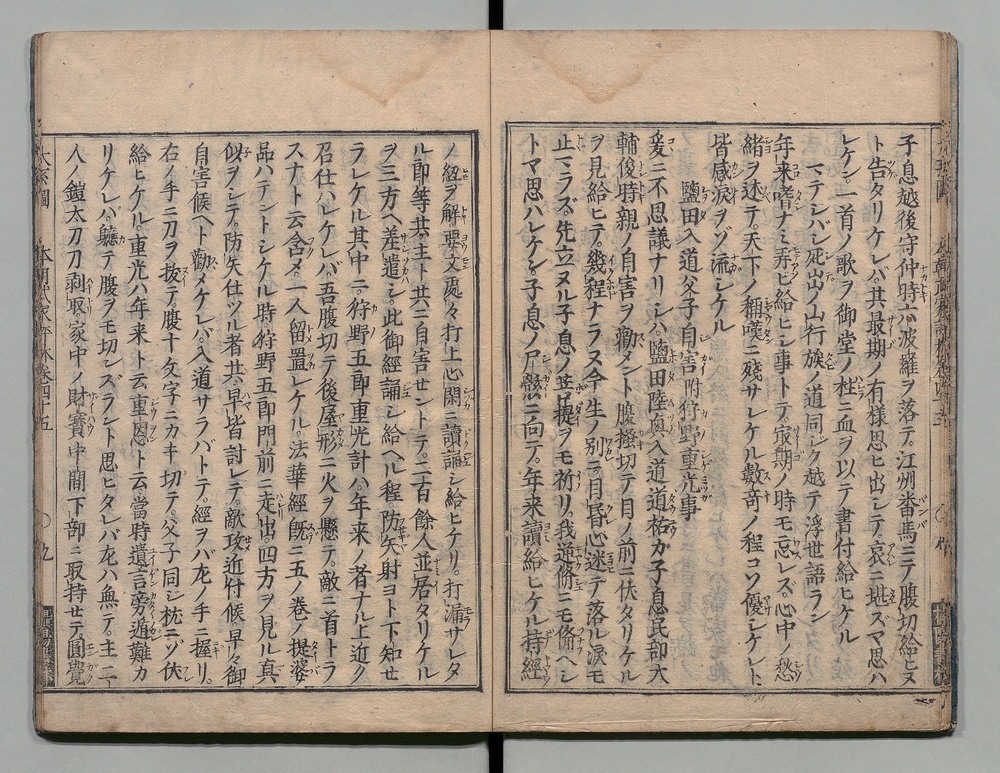 子息越後守仲時六波羅ヲ落テ。江州番馬ニテ腹切給ヒヌ
ト告タリケレバ。其最期ノ有様思ヒ出シテ。哀ニ堪ズヤ思ハ
レケン。一首ノ歌ヲ御堂ノ柱ニ血ヲ以テ書付給ヒケル
マテシバシ死出ノ山行族ノ道同ジク越テ浮世語ラン
年来嗜ナミ弄ビ給ヒシ事トテ。最期ノ時モ忘レズ。心中ノ愁
緒ヲ述テ。天下ノ稱嘆ニ殘サレケル。數奇ノ程コソ優シケレト
皆感涙ヲゾ流シケル
鹽田入道父子自害附狩野重光事
爰ニ不思議ナリシハ鹽田陸奥入道道祐ガ子息民部大
輔俊時親ノ自害ヲ勸メント腹搔切テ目ノ前ニ伏タリケル
ヲ見給ヒテ。幾程ナラヌ今生ノ別ニ目昏心迷テ落ル涙モ
止マラズ。先立ヌル子息ノ菩提ヲモ祈リ。我逆脩ニモ備ヘン
トヤ思ハレケン。子息ノ尸骸ニ向テ。年来讀給ヒケル持經
ノ紐ヲ解。要文處々打上心閑ニ讀誦シ給ヒケリ。打漏サレタ
ル郎等共。主ト共ニ自害セントテ。二百餘人並居タリケル
ヲ三方ヘ差遣シ。此御經誦シ給ヘル程防矢射ヨト下知セ
ラレケル。其中ニ。狩野五郎重光計ハ。年来ノ者ナル上近ク
召仕ハレケレバ。吾腹切テ後屋形ニ火ヲ懸テ。敵ニ首トラ
スナト云含メ。一人留置レケル。法華經既ニ五ノ巻ノ提婆
品ハテントシケル時。狩野五郎門前ニ走出。四方ヲ見ル真
似ヲシテ。防矢仕ツル者共。早皆討レテ。敵攻近付候早々御
自害候ヘト勸メケレバ。入道サラバトテ。經ヲバ左ノ手ニ握リ。
右ノ手ニ刀ヲ拔テ腹十文字ニカキ切テ。父子同ジ枕ニゾ伏
給ヒケル。重光ハ年来ト云重恩ト云當時遺言旁遁難カ
リケレバ。軈テ腹ヲモ切ンズラント思ヒタレバ左ハ無テ。主二
人ノ鎧太刀刀剥取。家中ノ財寶中間下部ニ取持セテ。圓覺
本朝武家評林巻四十五
九